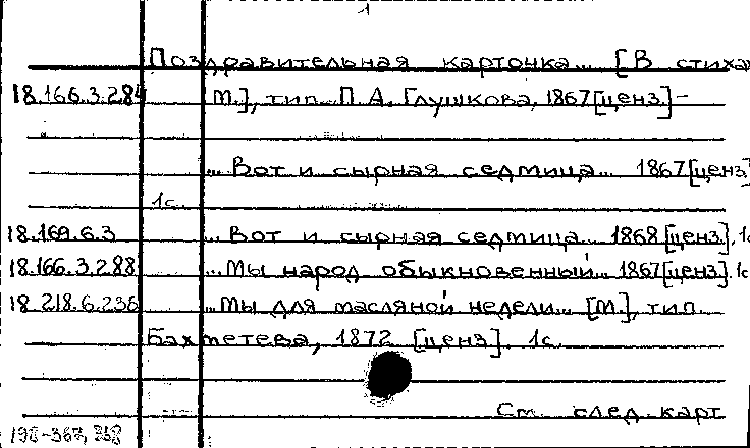 1
Поздравительная карточка... [В стиха
18.166.3.284 М.], тип. П.А. Глушкова, 1867 [ценз.] -
... Вот и сырная седмица... 1867 [ценз]
1с.
18.169.6.3 ... Вот и сырная седмица... 1868 [ценз.], 1с
18.166.3.288 ... Мы народ обыкновенный... 1867 [ценз]. 1с
18.218.6.236 ... Мы для масляной недели... [М.], тип.
Бахметева, 1872 [ценз]. 1с.
См. след. карт